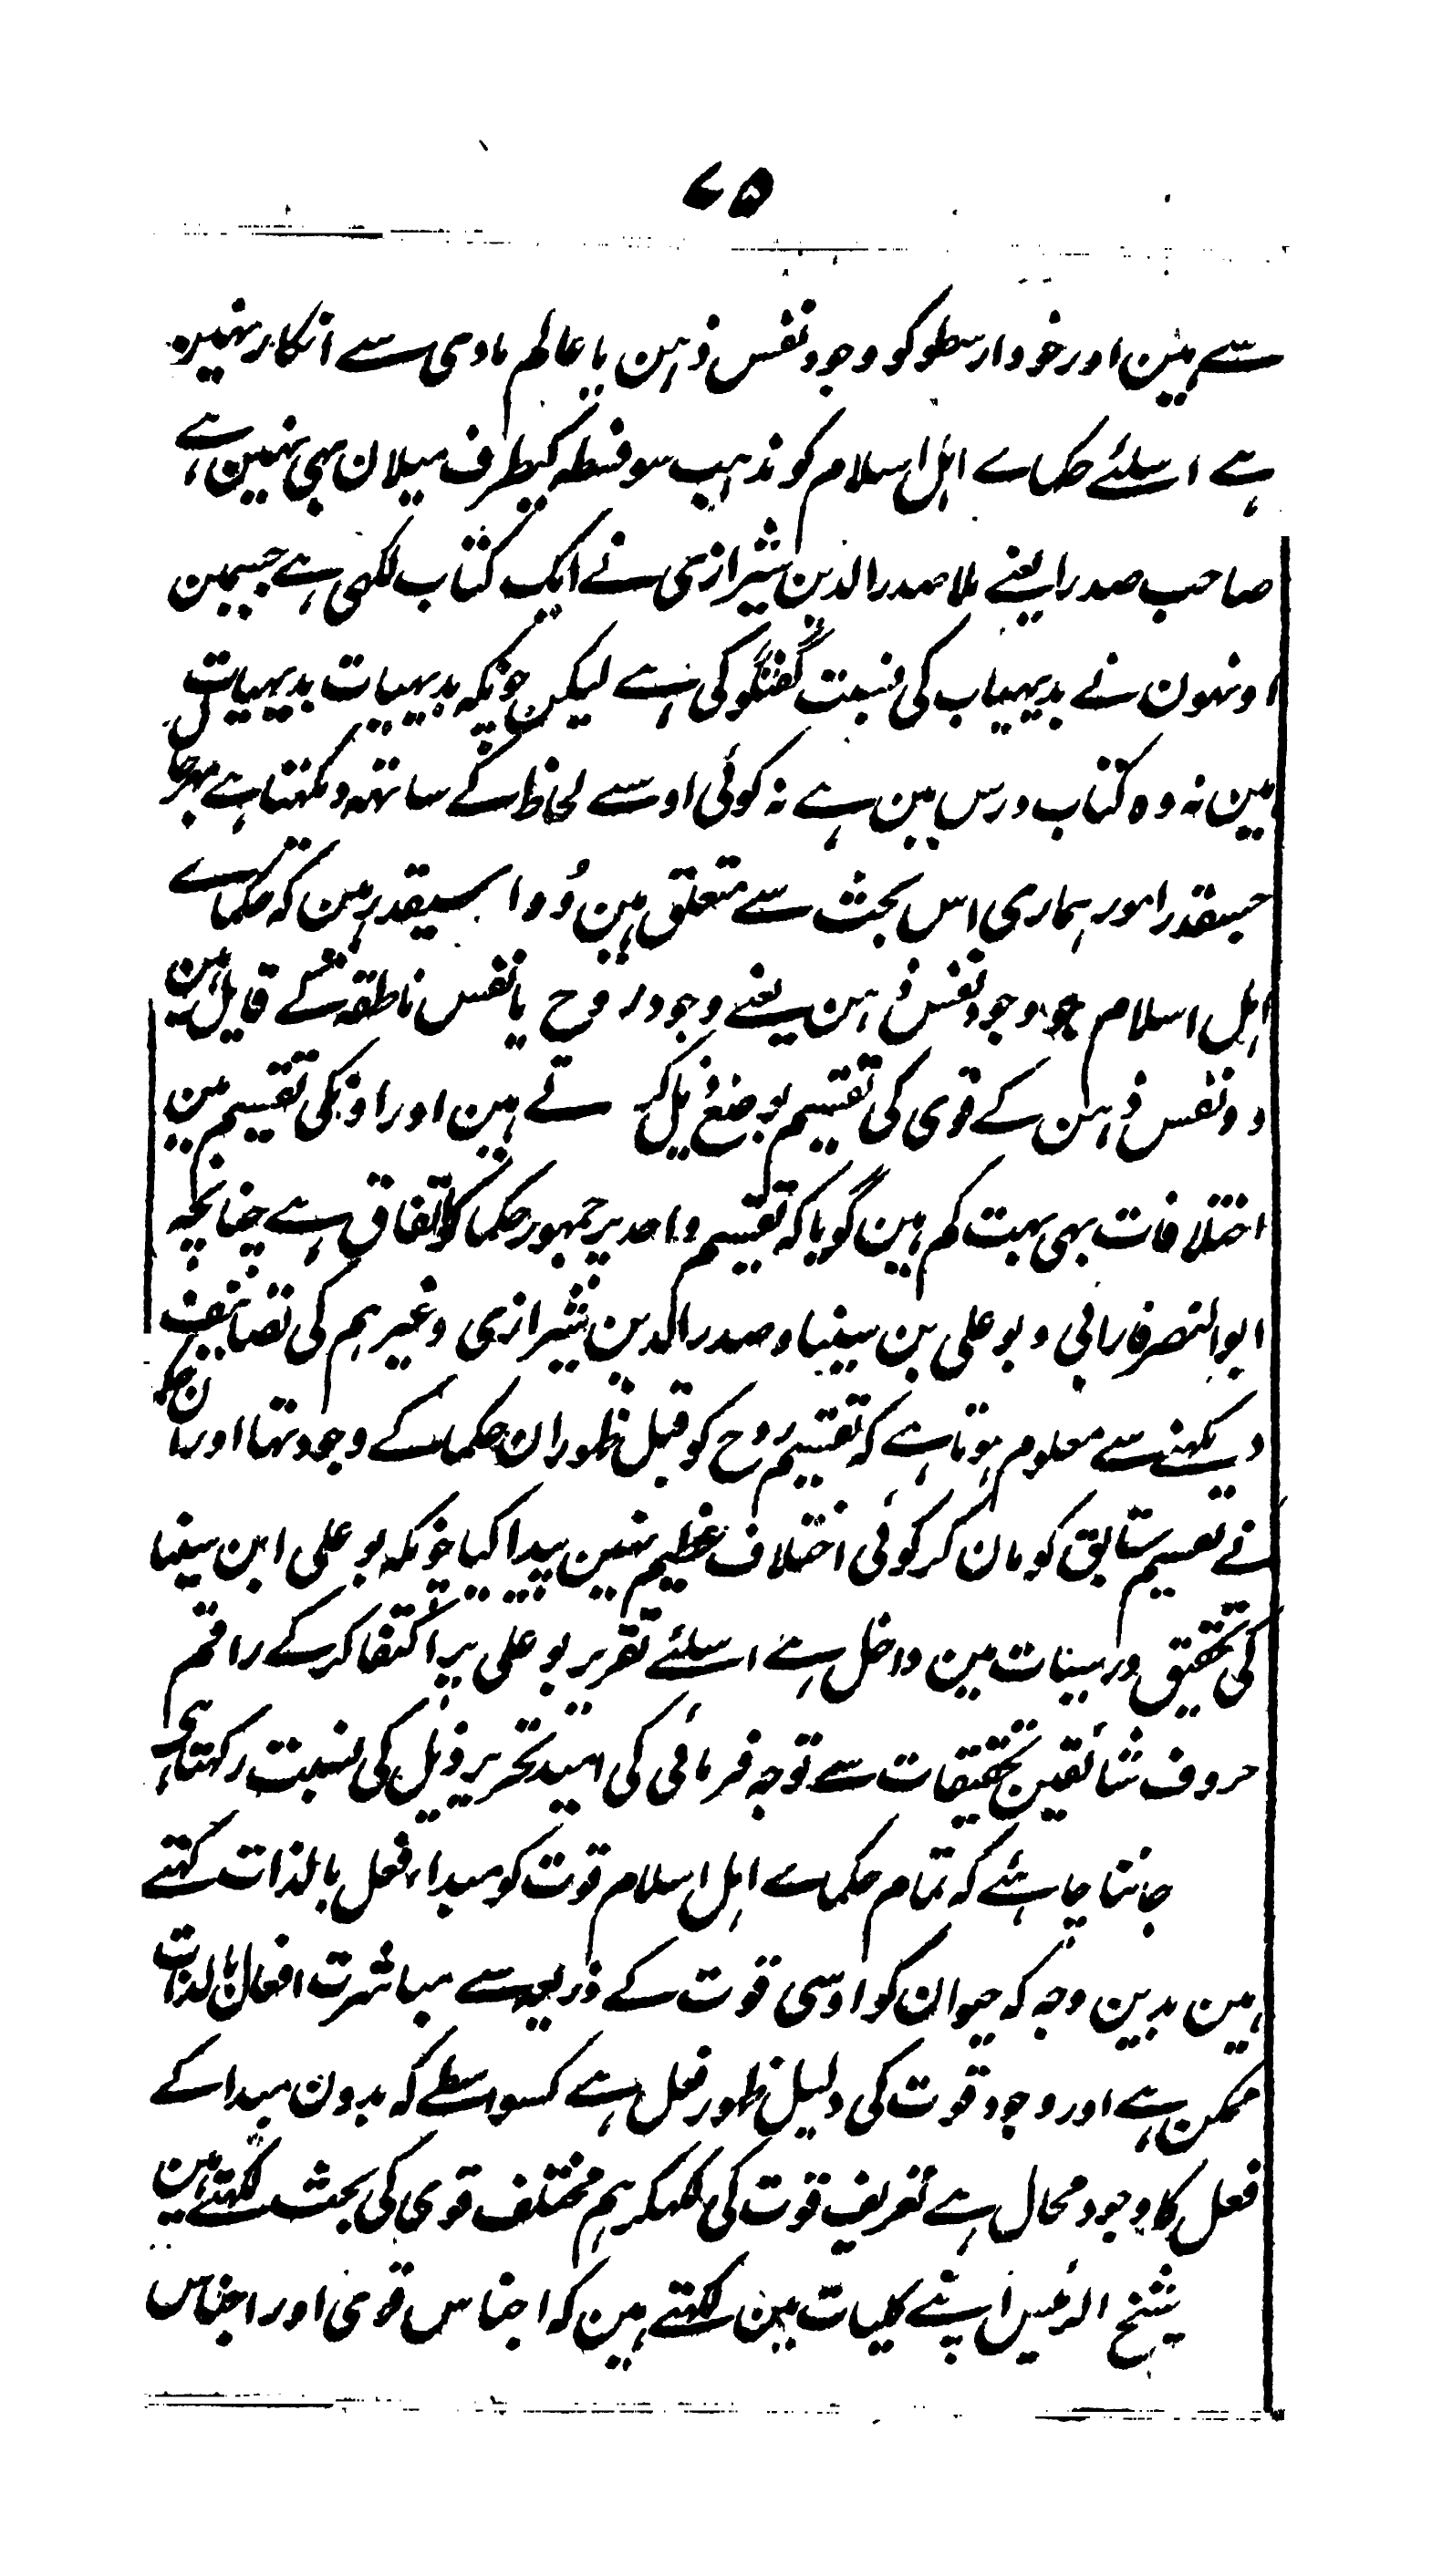 ۷۵
سے ہین اور خود ارسطو کو وجود نفس ذہن یا عالم مادی سے انکار نہین
ہے اسلئے حکماے اہل اسلام کو مذہب سوفسطہ کیطرف میلان بہی نہین ہے
صاحب صدرا یعنے ملا صدر الدین شیرازی نے ایک کتاب لکھی ہے جسمین
اونہون نے بدیہیات کی نسبت گفتگو کی ہے لیکن چونکہ بدیہیات بدیہیات ہی
ہین نہ وہ کتاب درس مین ہے نہ کوئی اوسے لحاظ کے ساتھہ دیکھتا ہے بہر حال
جسقدر امور ہماری اس بحث سے متعلق ہین وُہ اسیقدر ہین کہ حکماے
اہل اسلام جو وجود نفس ذہن یعنے وجود روح یا نفس ناطقہ کے قایل ہین
وہ نفس ذہن کے قوی کی تقسیم بوضع ذیل کرتے ہین اور اونکی تقسیم مین
اختلافات بہی بہت کم ہین گویا کہ تقسیم واحد پر جمہور حکما کو اتفاق ہے چنانچہ
ابو النصر فارابی و بو علی بن سینا و صدر الدین شیرازی وغیر ہم کی تصانیف
دیکہنے سے معلوم ہوتا ہے کہ تقسیم روح کو قبل ظہور ان حکما کے وجود تہا اور ان حکما
نے تقسیم سابق کو مان کر کوئی اختلاف عظیم نہین پیدا کیا چونکہ بو علی ابن سینا
کی تحقیق درسینات مین داخل ہے اسلئے تقریر بو علی پر اکتفا کر کے راقم
حروف شائقین تحقیقات سے توجہ فرمائی کی امید تحریر ذیل کی نسبت رکہتا ہے
جاننا چاہئے کہ تمام حکماے اہل اسلام قوت کو مبداء فعل بالذات کہتے
ہین بدین وجہ کہ حیوان کو اوسی قوت کے ذریعہ سے مباشرت افعال بالذات
ممکن ہے اور وجود قوت کی دلیل ظہور فعل ہے کسواسطے کہ بدون مبدا کے
فعل کا وجود محال ہے تعریف قوت کی لکہکر ہم مختلف قوی کی بحث لکہتے ہین
شیخ الرئیس اپنے کلیات مین لکہتے ہین کہ اجناس قوی اور اجناس